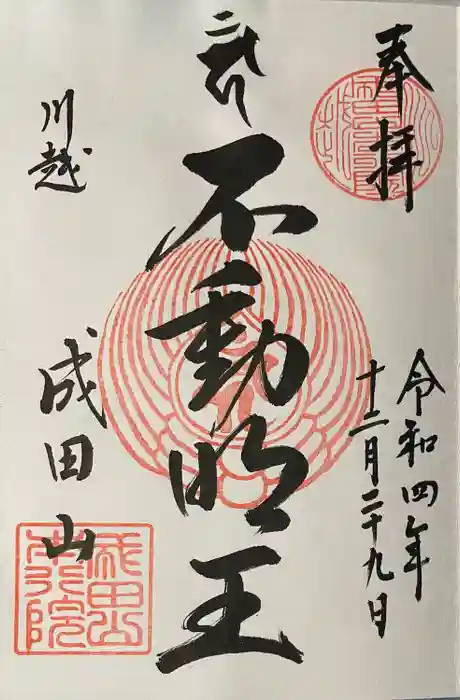 奉拝
令和四年
十二月二十九日
不動明王
川越
成田山
成田山
本行院